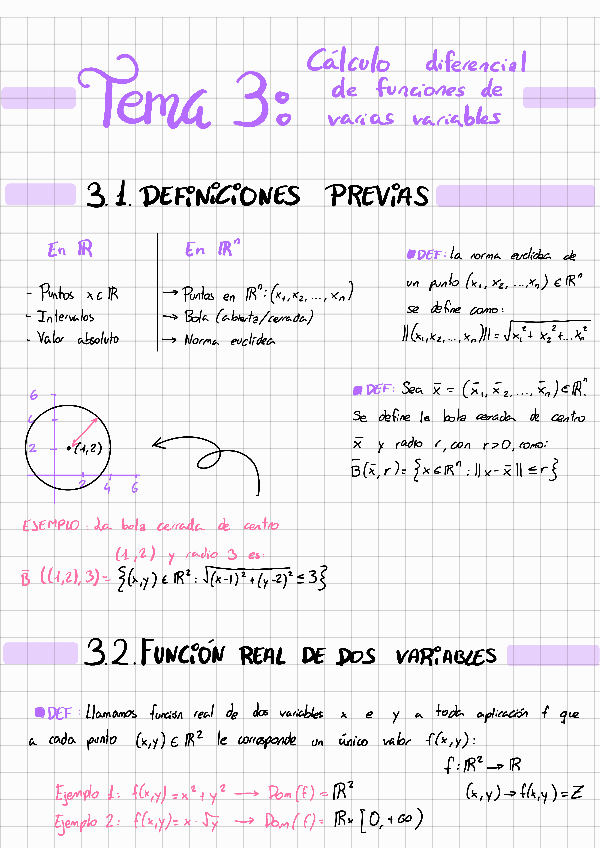 Tema 3:
Cálculo diferencial
de funciones de
varias variables
3.1. DEFINICIONES PREVIAS
En ℝ
- Puntos x ∈ ℝ
- Intervalos
- Valor absoluto
En ℝⁿ
→ Puntos en ℝⁿ: (x₁, x₂, ..., xₙ)
→ Bola (abierta/cerrada)
→ Norma euclídea
DEF: La norma euclídea de
un punto (x₁, x₂, ..., xₙ) ∈ ℝⁿ
se define como:
||(x₁, x₂, ..., xₙ)|| = √(x₁² + x₂² + ... xₙ²)
DEF: Sea x̄ = (x̄₁, x̄₂, ..., x̄ₙ) ∈ ℝⁿ.
Se define la bola cerrada de centro
x̄ y radio r, con r > 0, como:
B̄(x̄, r) = {x ∈ ℝⁿ : ||x - x̄|| ≤ r}
6
4
2
(1,2)
2 4 6
EJEMPLO: La bola cerrada de centro
(1,2) y radio 3 es:
B̄ ((1,2), 3) = {(x,y) ∈ ℝ² : √((x-1)² + (y-2)²) ≤ 3}
3.2. FUNCIÓN REAL DE DOS VARIABLES
DEF: Llamamos función real de dos variables x e y a toda aplicación f que
a cada punto (x,y) ∈ ℝ² le corresponde un único valor f(x,y):
f: ℝ² → ℝ
(x,y) → f(x,y) = Z
Ejemplo 1: f(x,y) = x² + y² → Dom(f) = ℝ²
Ejemplo 2: f(x,y) = x · √y → Dom(f) = ℝ × [0, +∞)